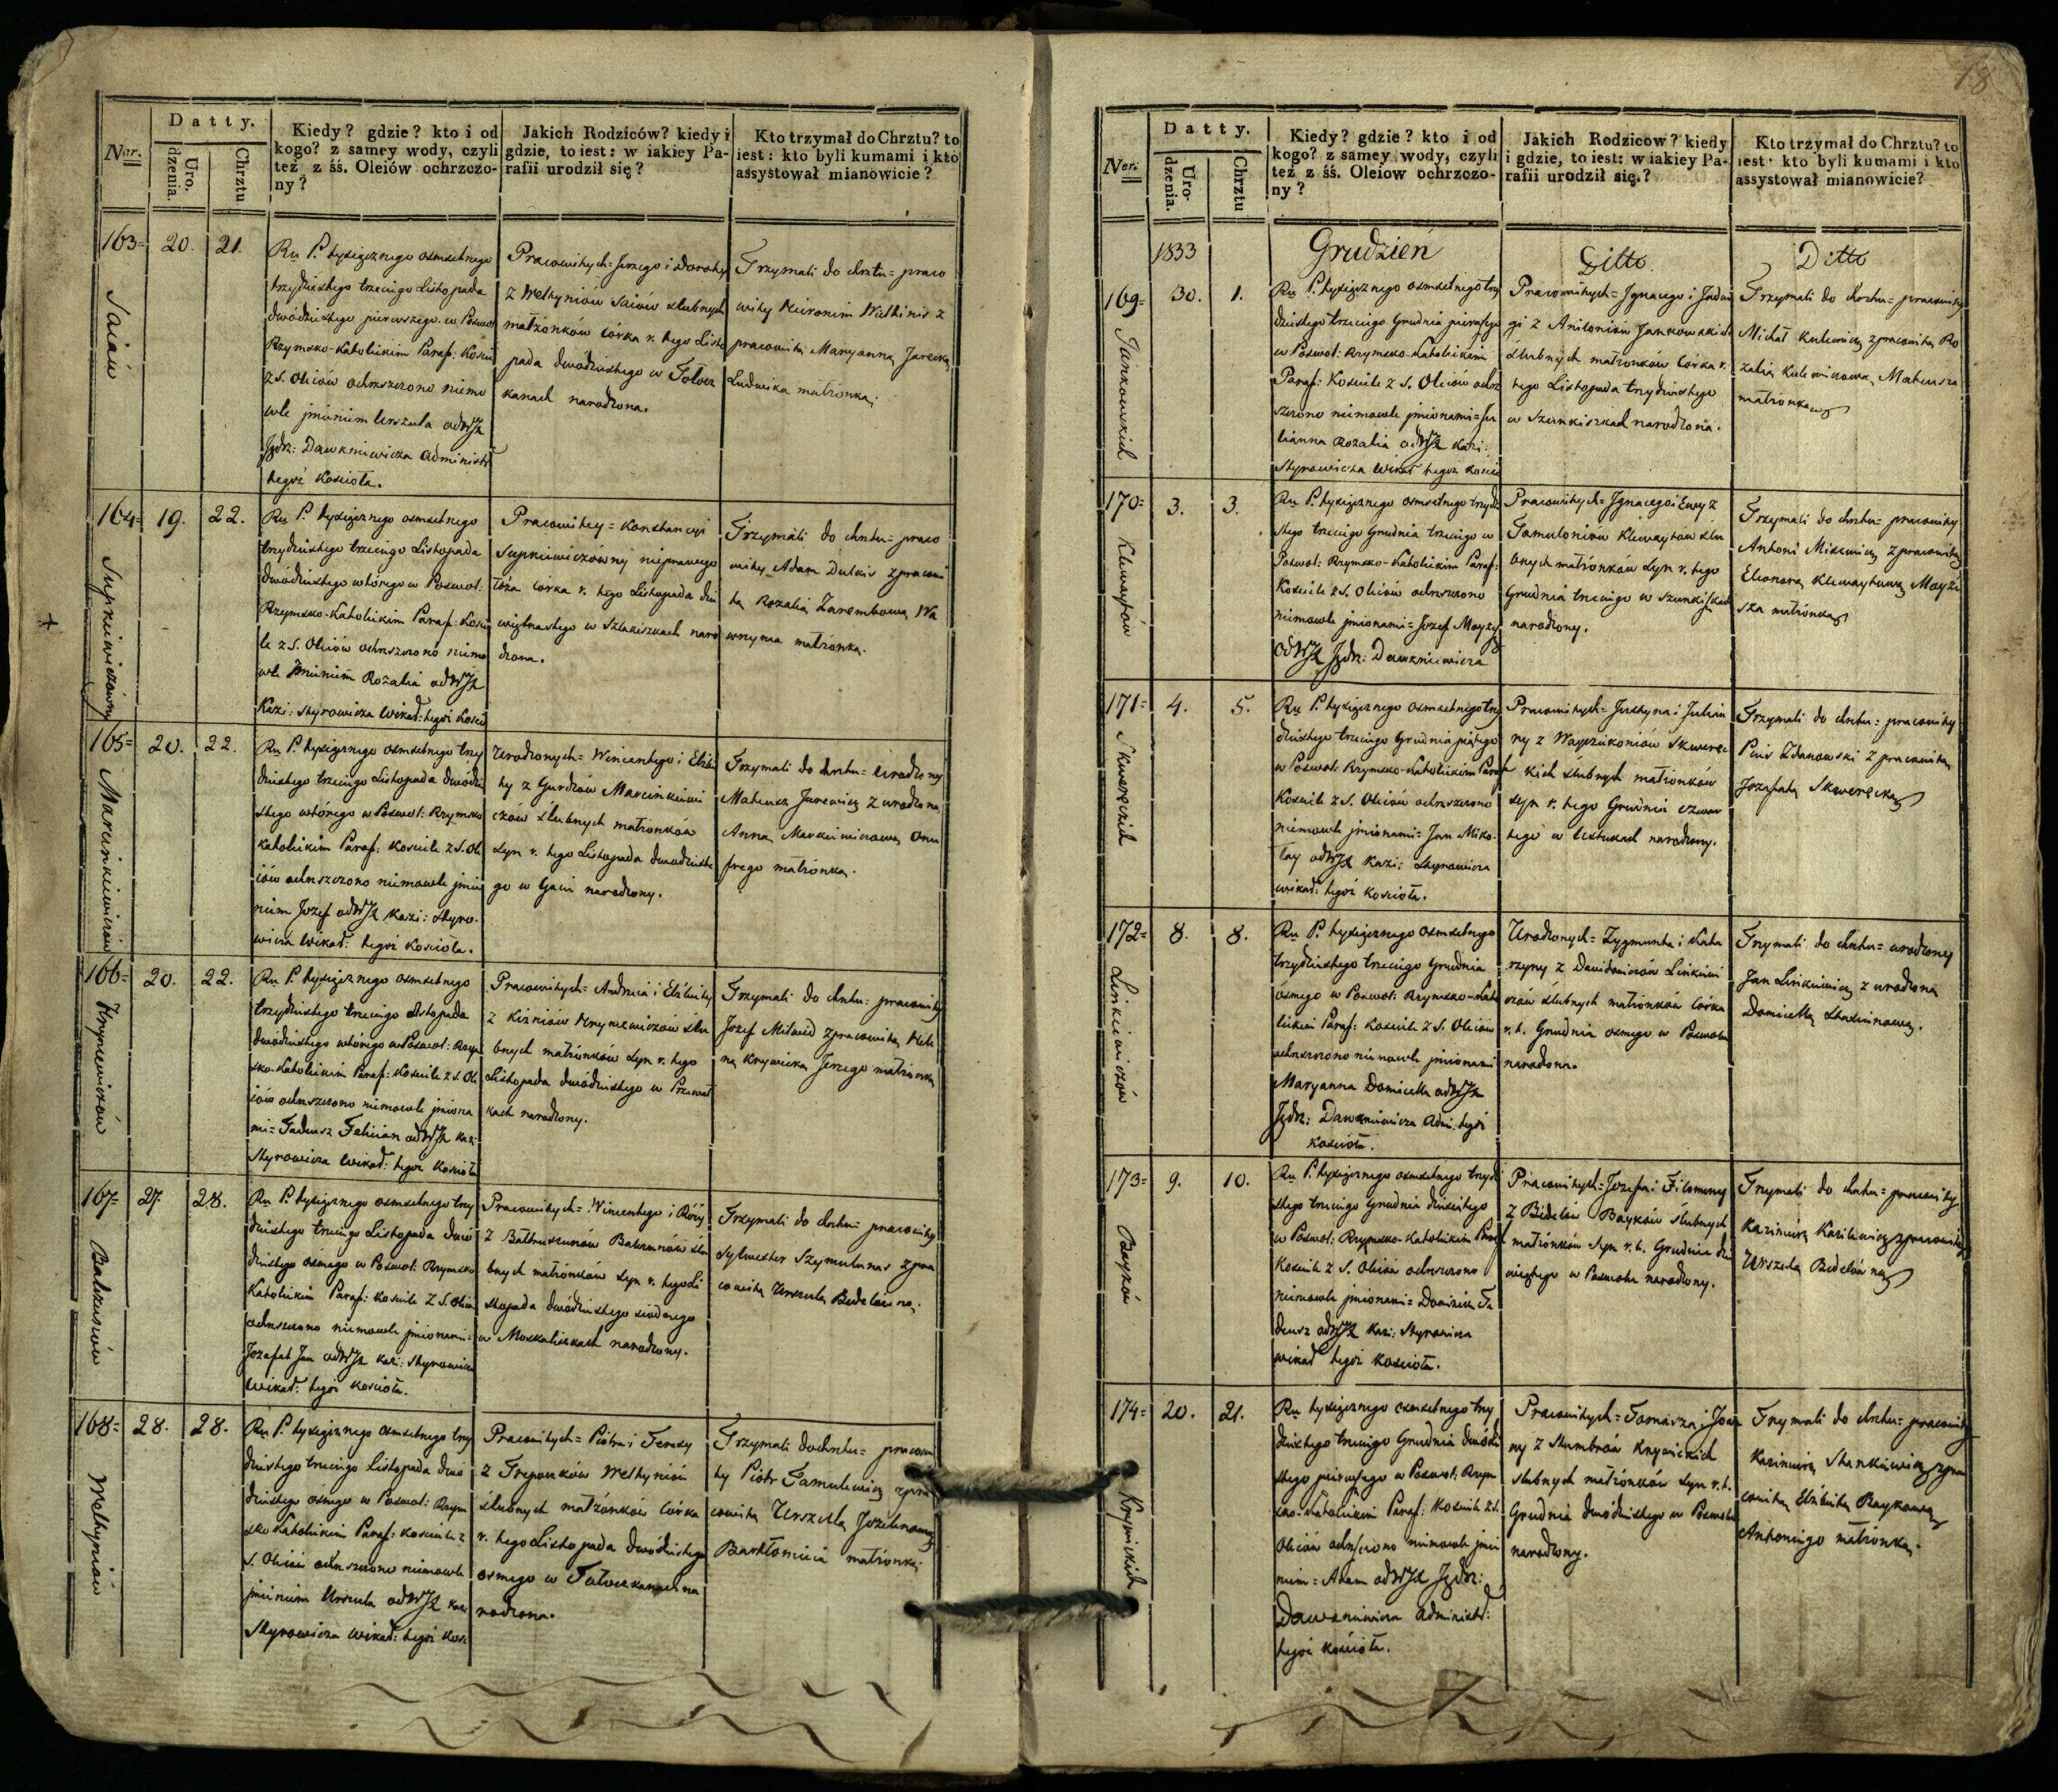 Ner.
Datty.
Uro. dzenia.
Chrztu
Kiedy? gdzie? kto i od
kogo? z samey wody, czyli
też z śś. Oleiów ochrzczo-
ny?
Jakich Rodziców? kiedy i
gdzie, to iest: w iakiey Pa-
rafii urodził się?
Kto trzymał do Chrztu? to
iest: kto byli kumami i kto
assystował mianowicie?
163=
20.
21.
Saiów
Ru P. tysiącznego osmsetnego
trzydziestego trzeciego Listopada
dwódziestego pierwszego w Poswol:
Rzymsko-Katolickim Paraf: Kościе
z S. Oleiów ochrszczono niemo
wle jmieniem Urszula od WJX
Jędrz: Dawkniewicza Administ
tegoż Kościoła.
Pracowitych= Jerzego i Doroty
z Wethyniów Saiów slubnych
małżonków córka r. tego Listo
pada dwódziestego w Tołocz
kanach narodzona.
Trzymali do chrztu= praco
wity Hieronim
pracowitą Maryanną
Ludwika małżonką.
164=
19.
22.
Supkiewiczówny
Ru P. tysiącznego osmsetnego
trzydziestego trzeciego Listopada
dwódziestego wtórego w Poswol:
Rzymsko-Katolickim Paraf: Kościе
le z S. Oleiów ochrszczono niemo
wle Jmieniem Rozalia od WJX
Kazi: Styrowicza Wikar: tegoż Kości
Pracowitey= Konstancyi
Supkiewiczówny nieprawego
łoża córka r. tego Listopada dzie
więtnastego w Szlakiszkach naro
dzona.
Trzymali do chrztu= praco
wity Adam Dulkis z pracowi
tą Rozalią Zarembową Wa
wrzyna małżonką.
165=
20.
22.
Marcinkiewiczów
Ru P. tysiącznego osmsetnego trzy
dziestego trzeciego Listopada dwódzie
stego wtórego w Poswol: Rzymsko
Katolickim Paraf: Kościele z S. Ole
iów ochrszczono niemowle jmie
niem Jozef od WJX Kazi: Styro-
wicza Wikar: tegoż Kościoła.
Urodzonych= Wincentego i Elżbie
ty z Gurdzów Marcinkiewi
czów slubnych małżonków
syn r. tego Listopada dwudzieste
go w Gaiu narodzony.
Trzymali do chrztu= Urodzony
Mateusz Jurewicz z urodzoną
Anną Markiewiczową Onu
frego małżonką.
166=
20.
22.
Hryncewiczów
Ru P. tysiącznego osmsetnego
trzydziestego trzeciego Listopada
dwódziestego wtórego w Poswol: Rzym
sko-Katolickim Paraf: Kościele z S. Ole
iów ochrszczono niemowle jmiona
mi= Tadeusz Felician od WJX Kazi:
Styrowicza Wikar: tegoż Kościoła
Pracowitych= Andrzeia i Elżbiety
z Kiżniów Hryncewiczów slu
bnych małżonków syn r. tego
Listopada dwódziestego w Przewał
kach narodzony.
Trzymali do chrztu= pracowity
Jozef Milwid z pracowitą Hele
ną Krywicką Jerzego małżonką
167=
27.
28.
Balczunów
Ru P. tysiącznego osmsetnego trzy
dziestego trzeciego Listopada dwó
dziestego osmego w Poswol: Rzymsko
Katolickim Paraf: Kościele z S. Oleiów
ochrszczono niemowle jmionami=
Jozafat Jan od WJX Kazi: Styrowicza
Wikar: tegoż Kościoła.
Pracowitych= Wincentego i Róży
z Bałtruszunów Balczunów slu
bnych małżonków syn r. tego Li
stopada dwódziestego siodmego
w Moskaliszkach narodzony.
Trzymali do chrztu= pracowity
Sylwester Szymulunas z pra
cowitą Urszulą Bidelówną.
168=
28.
28.
Wethyniów
Ru P. tysiącznego osmsetnego trzy
dziestego trzeciego Listopada dwó
dziestego osmego w Poswol: Rzym
sko Katolickim Paraf: Kościele z
S. Oleiów ochrszczono niemowle
jmieniem Urszula od WJX Kazi
Styrowicza Wikar: tegoż Kości:
Pracowitych= Piotra i Teressy
z Trepunków Wethyniów
slubnych małżonków córka
r. tego Listopada dwódziestego
osmego w Tołoczkanach na
rodzona.
Trzymali do chrztu= pracowi
ty Piotr Tamulewicz z pra
cowitą Urszulą
Bartłomieia małżonką.
18
Ner.
Datty.
Uro- dzenia.
Chrztu
Kiedy? gdzie? kto i od
kogo? z samey wody, czyli
też z śś. Oleiow ochrzczo-
ny?
Jakich Rodzicow? kiedy
i gdzie, to iest: w iakiey Pa-
rafii urodził się.?
Kto trzymał do Chrztu? to
iest: kto byli kumami i kto
assystował mianowicie?
1833
Grudzień
Ditto.
Ditto
169=
30.
1.
Jankowskich
Ru P. tysiącznego osmsetnego trzy
dziestego trzeciego Grudnia pierwszego
w Poswol: Rzymsko-Katolickim
Paraf: Kościele z S. Oleiów ochr
szczono niemowle jmionami= Ju
lianna Rozalia od WJX Kazi:
Styrowicza Wikar tegoż Kościo
Pracowitych= Jgnacego i Jadwi
gi z Anitoniów Jankowskich
slubnych małżonków córka r.
tego Listopada trzydziestego
w Szunkiszkach narodzona.
Trzymali do chrztu= pracowity
Michał Kulewicz z pracowitą Ro
zalią Kulewiczową Mateusza
małżonką
170=
3.
3.
Klewaytów
Ru P. tysiącznego osmsetnego trzydzie
stego trzeciego Grudnia trzeciego w
Poswol: Rzymsko-Katolickim Paraf:
Kościele z S. Oleiów ochrszczono
niemowle jmionami= Jozef Moyży
od WJX Jędrz: Dawkniewicza
Pracowitych= Jgnacego i Ewy z
Tamuloniów Klewaytów slu
bnych małżonków syn r. tego
Grudnia trzeciego w Szunkiszkach
narodzony.
Trzymali do chrztu= pracowity
Antoni Miskiewicz z pracowitą
Eleonorą Klewaytową Moyże
sza małżonką
171=
4.
5.
Skwereckich
Ru P. tysiącznego osmsetnego trzy
dziestego trzeciego Grudnia piątego
w Poswol: Rzymsko-Katolickim Paraf
Kościele z S. Oleiów ochrszczono
niemowle jmionami= Jan Miko-
łay od WJX Kazi: Styrowicza
wikar: tegoż Kościoła.
Pracowitych= Justyna i Julian
ny z Wayszukoniów Skwerec
kich slubnych małżonków
syn r. tego Grudnia czwar
tego w narodzony.
Trzymali do chrztu= pracowity
Pius Zdanowski z pracowitą
Jozafatą Skwerecką
172=
8.
8.
Linkiewiczów
Ru P. tysiącznego osmsetnego
trzydziestego trzeciego Grudnia
ósmego w Poswol: Rzymsko-Kato
lickim Paraf: Kościele z S. Oleiów
ochrszczono niemowle jmionami
Maryanna Domicella od WJX
Jędrz: Dawkniewicza Admi: tegoż
Kościoła.
Urodzonych= Zygmunta i Kata
rzyny z Dawidowiczów Linkiewi
czów slubnych małżonków córka
r. t. Grudnia osmego w Poswolu
narodzona.
Trzymali do chrztu= urodzony
Jan Linkiewicz z urodzoną
Domicellą
173=
9.
10.
Bayków
Ru P. tysiącznego osmsetnego trzydzie
stego trzeciego Grudnia dziesiątego
w Poswol: Rzymsko-Katolickim Paraf
Kościele z S. Oleiów ochrszczono
niemowle jmionami= Dominik Ta
deusz od WJX Kazi: Styrowicza
wikar tegoż Kościoła.
Pracowitych= Jozefa i Filomeny
z Bidelów Bayków slubnych
małżonków syn r. t. Grudnia dzie
wiątego w Poswolu narodzony.
Trzymali do chrztu= pracowity
Kazimierz Wasilewicz z pracowitą
Urszulą Bidelówną
174=
20.
21.
Krywickich
Ru tysiącznego osmsetnego trzy
dziestego trzeciego Grudnia dwódzie
stego pierwszego w Poswol: Rzym
sko-Katolickim Paraf: Kościele z S.
Oleiów ochrszczono niemowle jmie
niem= Adam od WJX Jędrz:
Dawkniewicza Administ:
tegoż Kościoła.
Pracowitych= Tomasza i Joan
ny z Stumbrów Krywickich
slubnych małżonków syn r. t.
Grudnia dwódziestego w Poswolu
narodzony.
Trzymali do chrztu= pracowity
Kazimierz Stankiewicz z pra
cowitą Elżbietą Baykową
Antoniego małżonką.